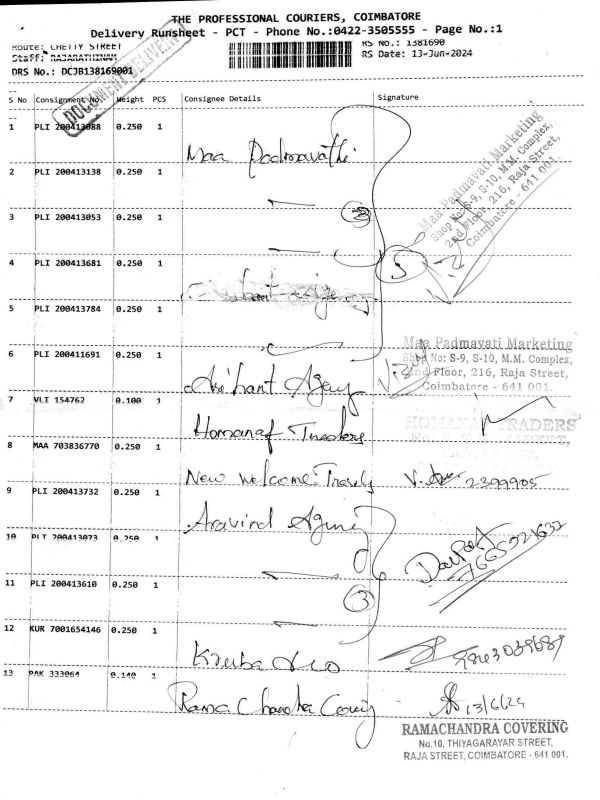 THE PROFESSIONAL COURIERS, COIMBATORE
Delivery Runsheet - PCT - Phone No.:0422-3505555 - Page No.:1
Route: CHETTY STREET
RS No.: 1381690
Staff: RAJARATHINAM
RS Date: 13-Jun-2024
DRS No.: DCJB138169001
DOCUMENT DELIVERY
S No Consignment No. Weight PCS Consignee Details Signature
1 PLI 200413088 0.250 1
Maa Padmavathi
2 PLI 200413138 0.250 1
3 PLI 200413053 0.250 1
Maa Padmavati Marketing
Shop No: S-9, S-10, M.M. Complex,
2nd Floor, 216, Raja Street,
Coimbatore - 641 001.
4 PLI 200413681 0.250 1
5
5 PLI 200413784 0.250 1
6 PLI 200411691 0.250 1
Maa Padmavati Marketing
Shop No: S-9, S-10, M.M. Complex,
2nd Floor, 216, Raja Street,
Coimbatore - 641 001.
Arihant Agency
7 VLI 154762 0.100 1
HOMANA TRADERS
8 MAA 703836770 0.250 1
New Welcome Travels
2399905
9 PLI 200413732 0.250 1
Aravind Agency
10 PLI 200413073 0.250 1
11 PLI 200413610 0.250 1
3
12 KUR 7001654146 0.250 1
13 PAK 333064 0.140 1
Rama Chandra Covering
13/6/24
RAMACHANDRA COVERING
No.10, THIYAGARAYAR STREET,
RAJA STREET, COIMBATORE - 641 001.